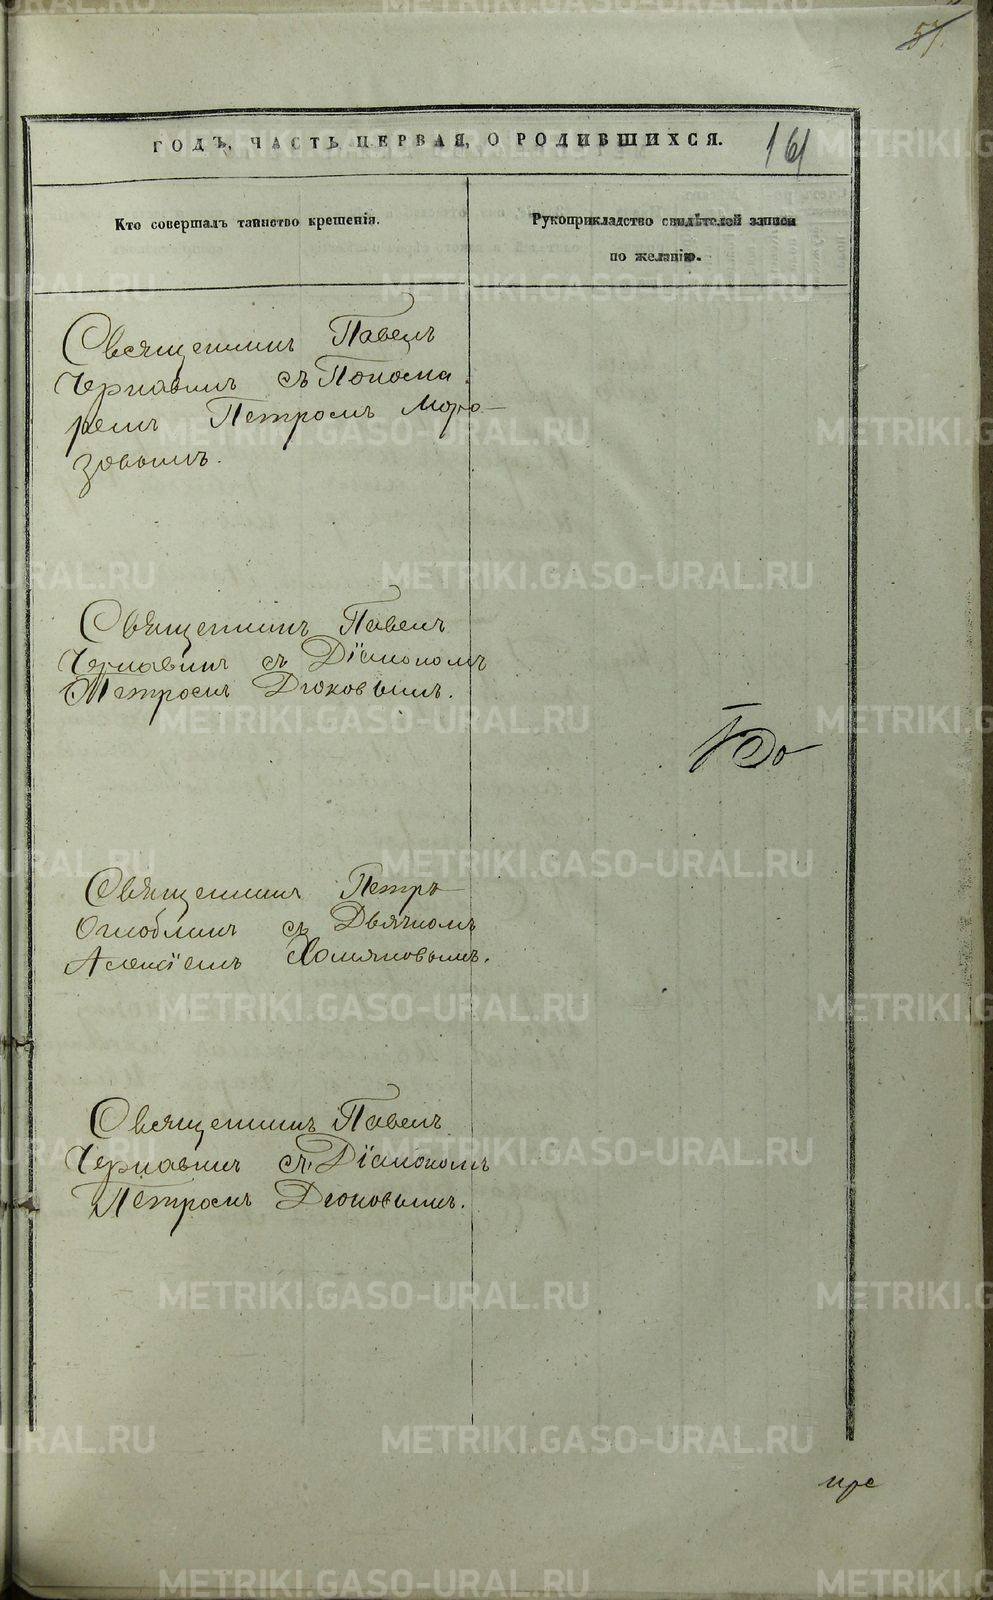 57.
ГОДЪ, ЧАСТЬ ПЕРВАЯ, О РОДИВШИХСЯ.
161
Кто совершалъ таинство крещенія.
Рукоприкладство свидѣтелей записи
по желанію.
Священникъ Павелъ
Чернавинъ съ Понома
ремъ Петромъ Моро-
зовымъ.
Священникъ Павелъ
Чернавинъ съ Діакономъ
Петромъ Дюковымъ.
Священникъ Петръ
Оглоблинъ съ Дьячкомъ
Алексіемъ Холмяковымъ.
Священникъ Павелъ
Чернавинъ съ Діакономъ
Петромъ Дюковымъ.
METRIKI.GASO-URAL.RU